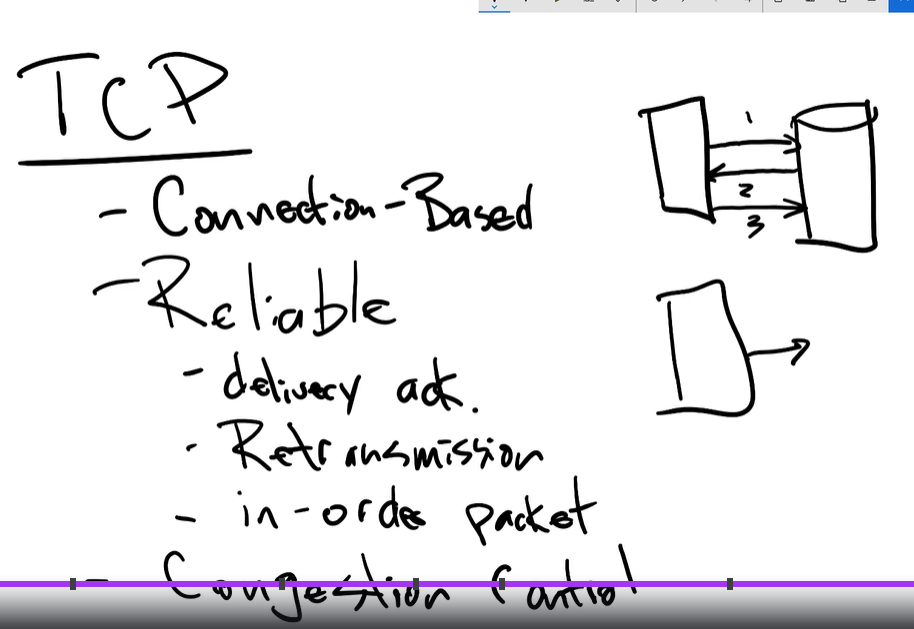 TCP
- Connection-Based
- Reliable
- delivery ack.
- Retransmission
- in-order packet
- Congestion Control
1
2
3